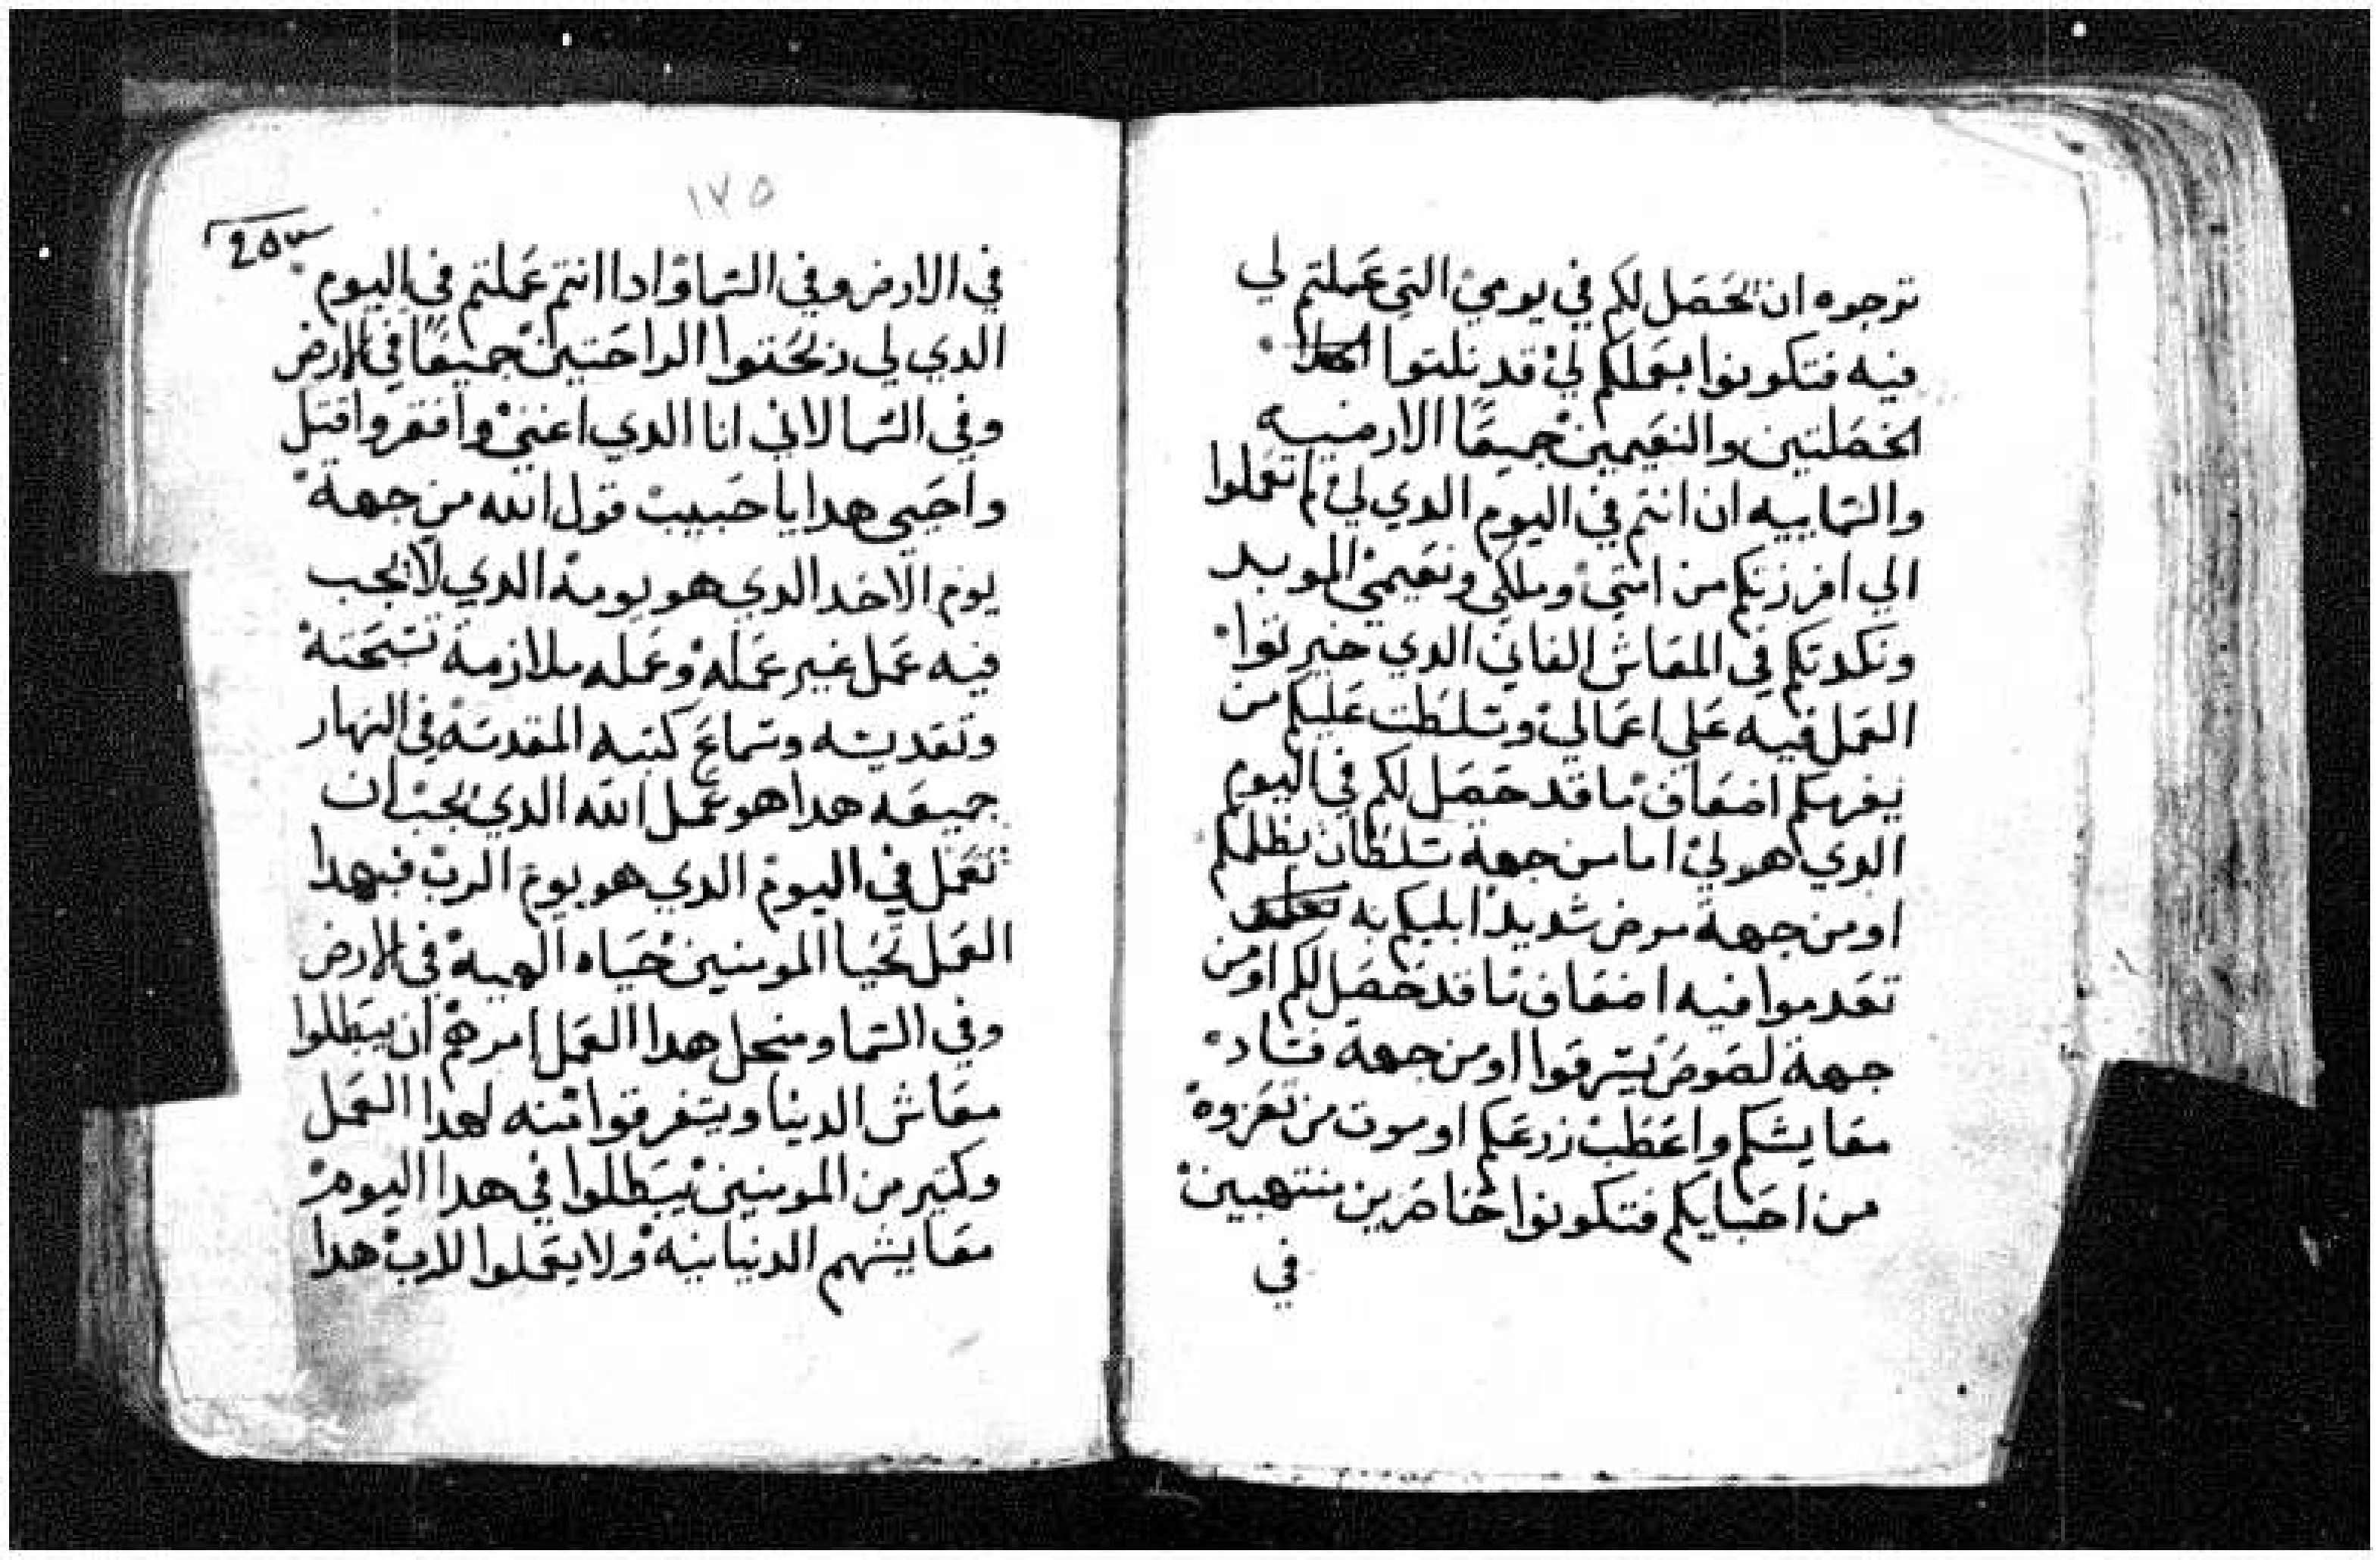 ترجوه ان تحصل لكم في يومي التي عملتم لي
فيه فتكونوا بعملكم لي قد نلتوا
الخصلتين والنعيمين جميعا الارضيه
والسماييه ان انتم في اليوم الدي لي لم تعملوا
الي افرزتكم من امتي وملكي ونعيمي الموبد
ونكدتكم في المعاش الفاني الدي خيرتوا
العمل فيه علي اعمالي وسلطت عليكم من
يغرمكم اضعاف ما قد حصل لكم في اليوم
الدي هو لي اما من جهة سلطان يظلمكم
او من جهة مرض شديد ابليكم به
تعدموا فيه اضعاف ما قد حصل لكم او من
جهة لصوص يسرقوا او من جهة فساد
معايشكم واعطب زرعكم او موت من تعزوه
من احبايكم فتكونوا خاسرين منتهبين
في
١٧٥
في الارض وفي السما وادا انتم عملتم في اليوم
الدي لي ربحتوا الراحتين جميعا في الارض
وفي السما لاني انا الدي اغني وافقر واقتل
واحيي هدا يا حبيب قول الله من جهة
يوم الاحد الدي هو يومه الدي لا يجب
فيه عمل غير عمله وعمله ملازمة تسبحته
وتقديسه وسماع كتبه المقدسه في النهار
جميعه هدا هو عمل الله الدي يجب ان
تعمل في اليوم الدي هو يوم الرب فبهدا
العمل تحيا المومنين حياه الهية في الارض
وفي السما ومنجل هدا العمل امرهم ان يبطلوا
معاش الدنيا ويتفرقوا منه لهدا العمل
وكتير من المومنين يبطلوا في هدا اليوم
معايشهم الدنيانيه ولا يعملوا للرب هدا